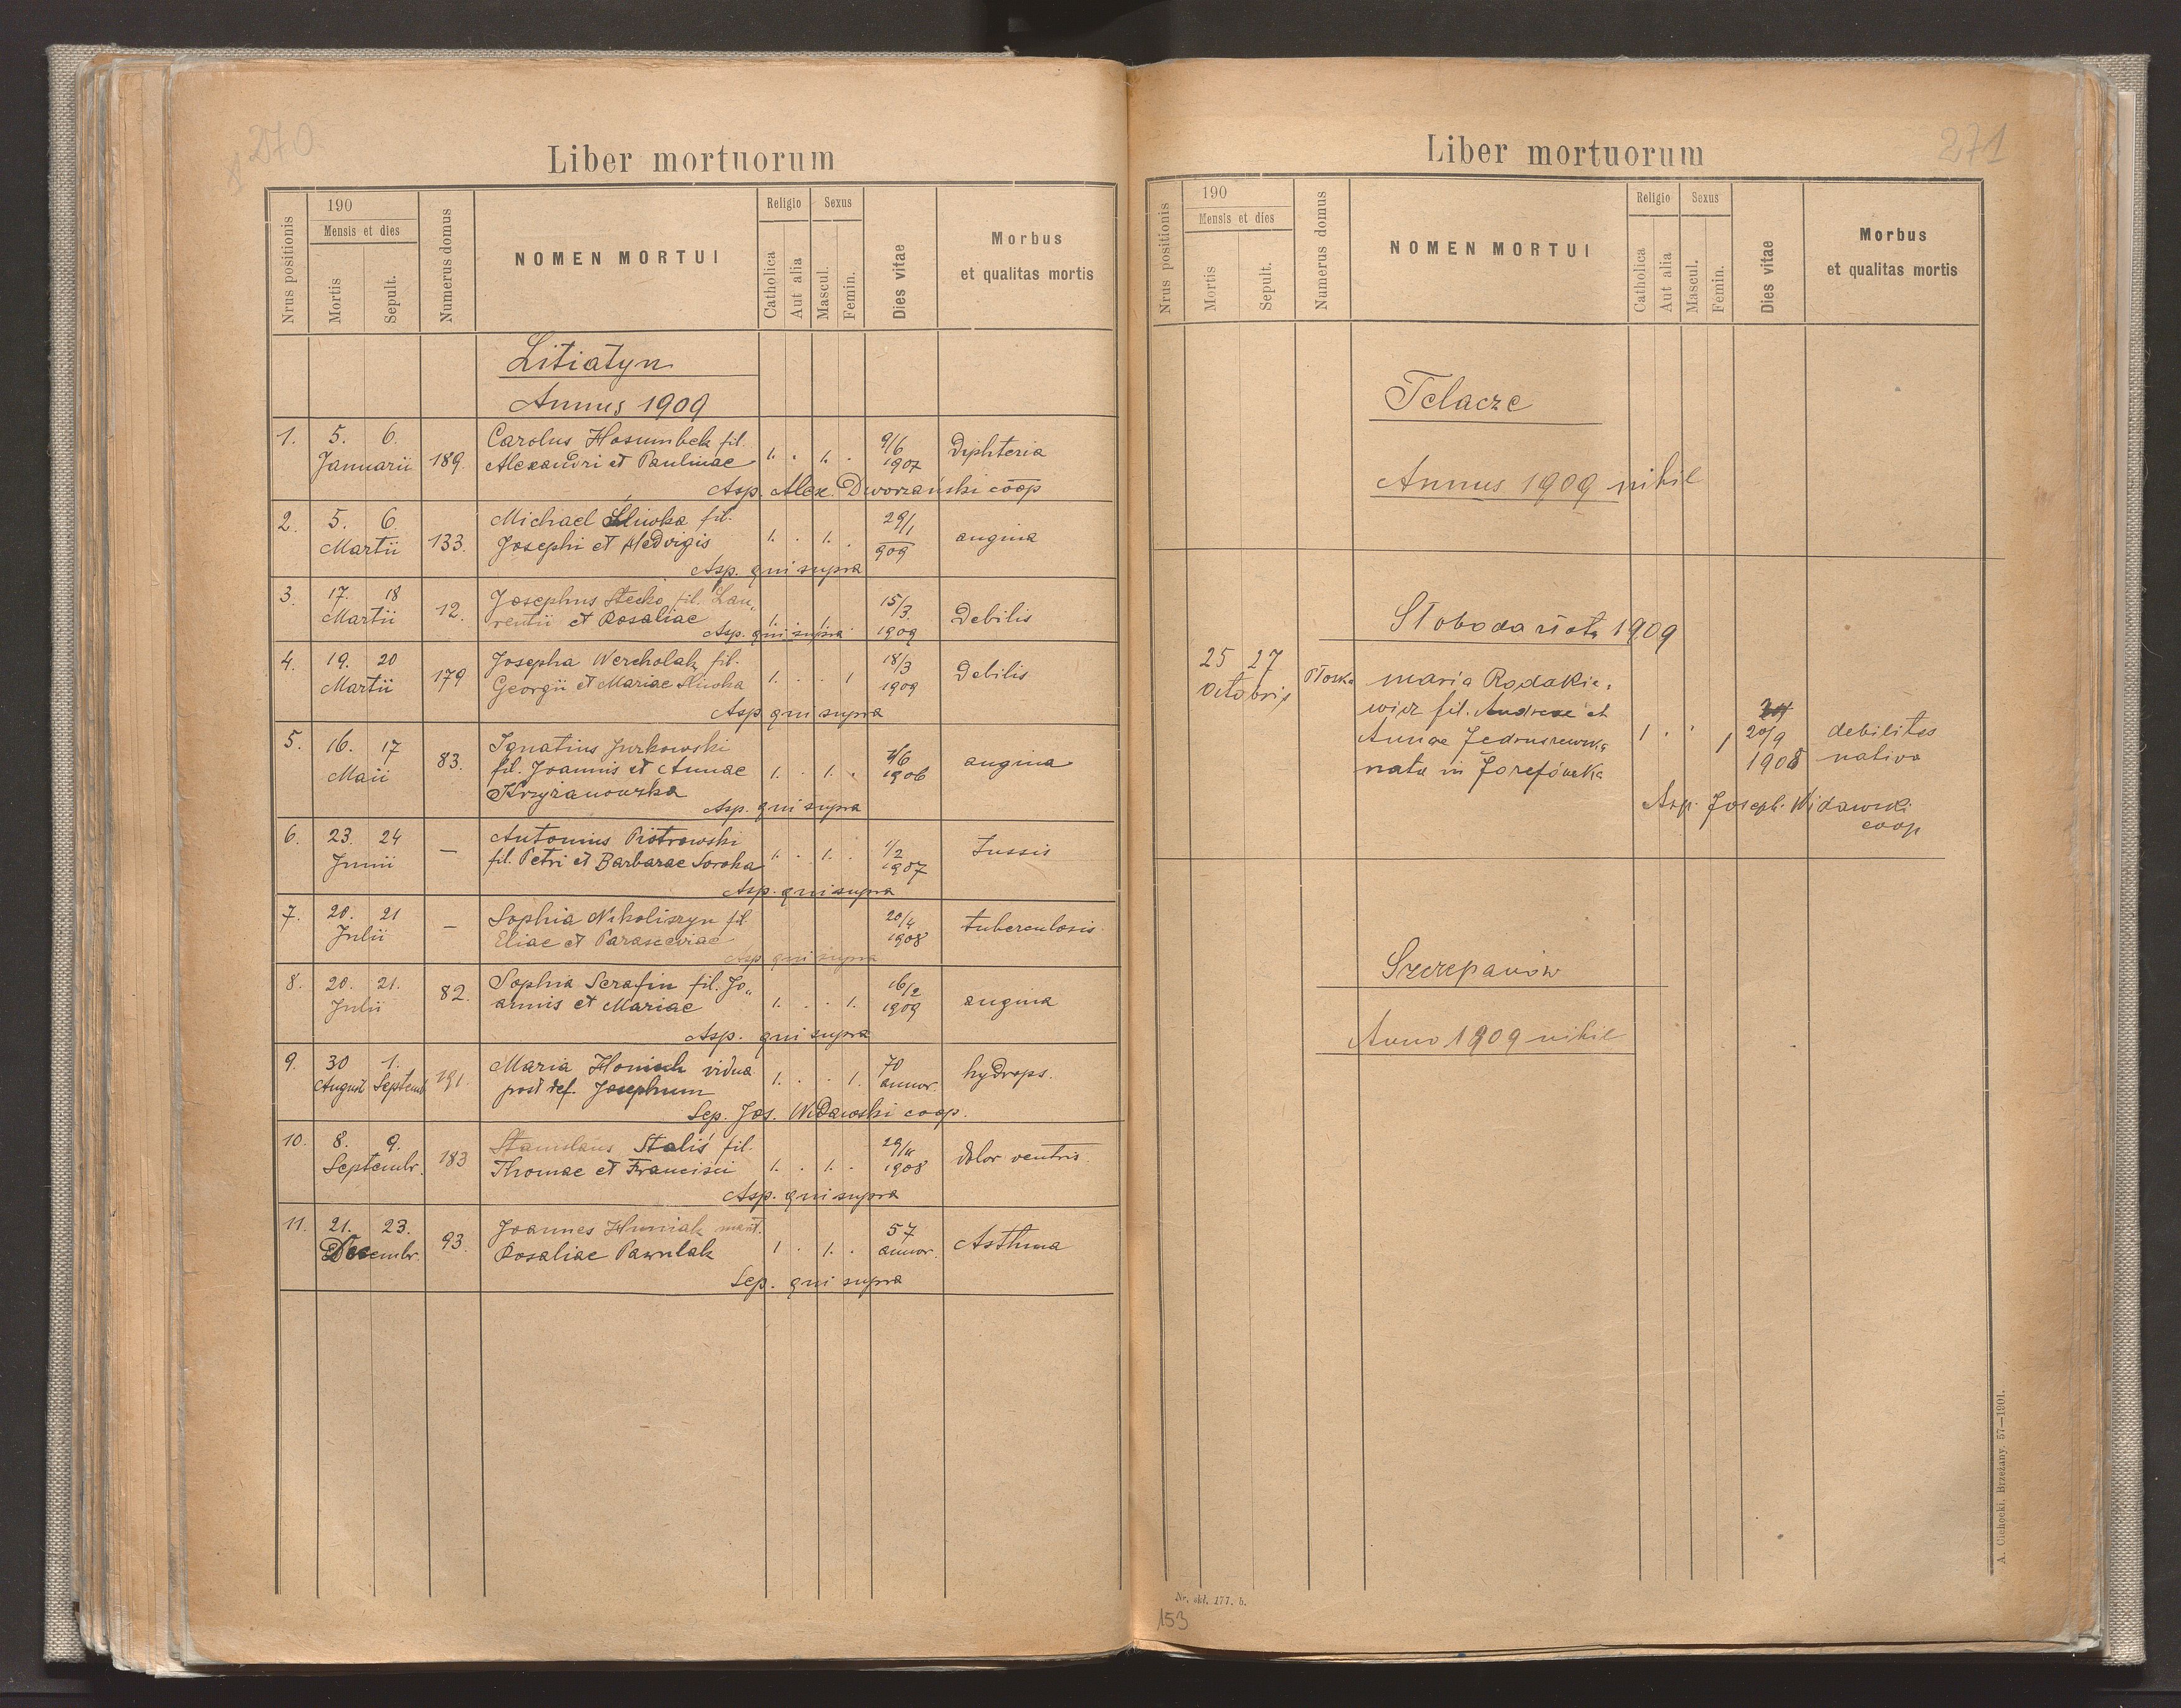 270
Liber mortuorum
Nrus positionis
190
Mensis et dies
Mortis
Sepult.
Numerus domus
NOMEN MORTUI
Religio
Catholica
Aut alia
Sexus
Mascul.
Femin.
Dies vitae
Morbus
et qualitas mortis
Litiatyn
Annus 1909
1. 5. 6. Carolus Hosumbek fil. 9/6
Januarii 189. Alexandri et Paulinae 1. . 1. . 1907 Diphteria
Asp. Alex. Dworzański coop
2. 5. 6. Michael Śliwka fil. 29/1
Martii 133. Josephi et Hedvigis 1. . 1. . 909 angina
Asp. qui supra
3. 17. 18 Josephus Stecko fil. Lau„ 15/3
Martii 12. rentii et Rosaliae 1. 1. 1909 Debilis
Asp. qui supra
4. 19. 20 Josepha Wercholak fil. 18/3
Martii 179 Georgii et Mariae Śliwka 1. . . 1 1909 Debilis
Asp qui supra
5. 16. 17 Ignatius Jurkowski
Maii 83. fil. Joannis et Annae 1. . 1. . 1906 angina
Krzyżanowska
Asp. qui supra
6. 23. 24 Antonius Piotrowski
Junii — fil. Petri et Barbarae Soroka 1. . 1. . 1/2 1907 Tussis
Asp. qui supra
7. 20. 21 Sophia Mikoliszyn fil. 20/4
Julii — Eliae et Parasceviae 1908 tuberculosis
Asp qui supra
8. 20. 21. Sophia Serafin fil. Jo„ 16/2
Julii 82. annis et Mariae 1. . . 1. 1909 angina
Asp. qui supra
9. 30 1. Maria Honisch vidua 70
Augusti Septemb 191. post def. Josephum 1. . . 1. annor. hydrops.
Sep. Jos. Widawski coop.
10. 8. 9. Stanislaus Staliś fil.
Septembr. 183 Thomae et Francisci 1. . 1. . 1908 dolor ventris
Asp. qui supra
11. 21. 23. Joannes Huniak marit. 57
Decembr. 93. Rosaliae Pawulak 1 . 1. . annor. Asthma
Sep. qui supra
271
Liber mortuorum
Nrus positionis
190
Mensis et dies
Mortis
Sepult.
Numerus domus
NOMEN MORTUI
Religio
Catholica
Aut alia
Sexus
Mascul.
Femin.
Dies vitae
Morbus
et qualitas mortis
Telacze
Annus 1909 nihil
Słoboda złota 1909
25 27 maria Rodakie„
octobris wicz fil. Andreae et
Annae Jędruszewska 1 . . 1 20/9 debilitas
nata in Józefówka 1908 nativa
Asp. Joseph. Widawski
coop
Szczepanów
Anno 1909 nihil
A. Cichocki. Brzeżany. 57—1901.
Nr. skł. 177. b.
153